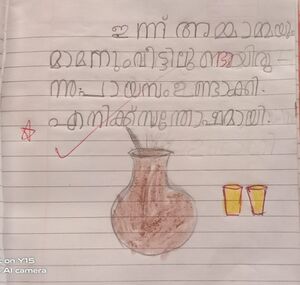 ഇന്ന് അമ്മാമ്മയും
മാമനും വീട്ടിലുണ്ടായിരു-
ന്നു പായസം ഉണ്ടാക്കി.
എനിക്ക് സന്തോഷമായി.
on Y15
AI camera